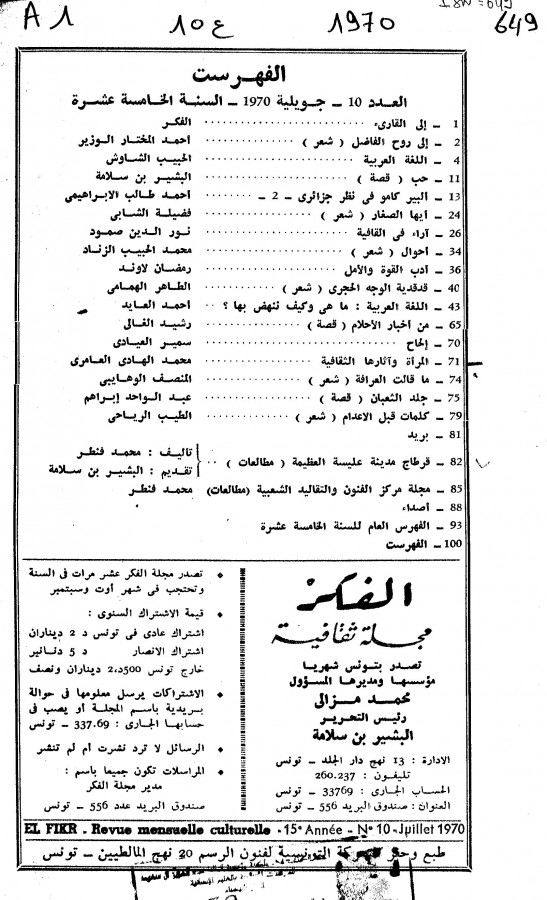 A1 10ع 1970 649
الفهرست
العدد 10 ـ جويلية 1970 ـ السنة الخامسة عشرة
1 ـ إلى القارىء ........ الفكر
2 ـ إلى روح الفاضل ( شعر ) ........ احمد المختار الوزير
4 ـ اللغة العربية ........ الحبيب الشاوش
11 ـ حب ( قصة ) ........ البشير بن سلامة
13 ـ البير كامو فى نظر جزائرى ـ 2 ـ ........ احمد طالب الابراهيمي
24 ـ أيها الصغار ( شعر ) ........ فضيلة الشابى
26 ـ آراء فى القافية ........ نور الدين صمود
34 ـ أحوال ( شعر ) ........ محمد الحبيب الزناد
36 ـ أدب القوة والأمل ........ رمضان لاوند
40 ـ قدقدية الوجه الحجرى ( شعر ) ........ الطاهر الهمامى
43 ـ اللغة العربية : ما هى وكيف ننهض بها ؟ .. أحمد العايد
65 ـ من أخبار الأحلام ( قصة ) ........ رشيد الغالى
70 ـ إلحاح ........ سمير العيادى
71 ـ المرأة وآثارها الثقافية ........ محمد الهادى العامرى
74 ـ ما قالت العرافة ( شعر ) ........ المنصف الوهايبى
75 ـ جلد الثعبان ( قصة ) ........ عبد الواحد إبراهم
79 ـ كلمات قبل الاعدام ( شعر ) ........ الطيب الرياحى
81 ـ بريد
82 ـ قرطاج مدينة عليسة العظيمة ( مطالعات ) .. تاليف : محمد فنطر
تقديم : البشير بن سلامة
85 ـ مجلة مركز الفنون والتقاليد الشعبية (مطالعات) محمد فنطر
88 ـ أصداء
93 ـ الفهرس العام للسنة الخامسة عشرة
100 ـ الفهرست
الفكر
مجلة ثقافية
تصدر بتونس شهريا
مؤسسها ومديرها المسؤول
محمد مزالى
رئيس التحرير
البشير بن سلامة
الادارة : 13 نهج دار الجلد ـ تونس
تليفون : 260.237
الحساب الجارى : 33769 ـ تونس
العنوان : صندوق البريد 556 ـ تونس
• تصدر مجلة الفكر عشر مرات فى السنة
وتحتجب فى شهر أوت وسبتمبر
• قيمة الاشتراك السنوى :
اشتراك عادى فى تونس د 2 ديناران
اشتراك الانصار د 5 دنانير
خارج تونس 2،500د ديناران ونصف
• الاشتراكات يرسل معلومها فى حوالة
بريدية باسم المجلة أو يصب فى
حسابها الجارى : 337.69 ـ تونس
• الرسائل لا ترد نشرت ام لم تنشر
• المراسلات تكون جميعا باسم :
مدير مجلة الفكر
صندوق البريد عدد 556 ـ تونس
EL FIKR . Revue mensuelle culturelle - 15e Année - N° 10 - Juillet 1970
طبع وحفر الشركة التونسية لفنون الرسم 20 نهج المالطيين ـ تونس